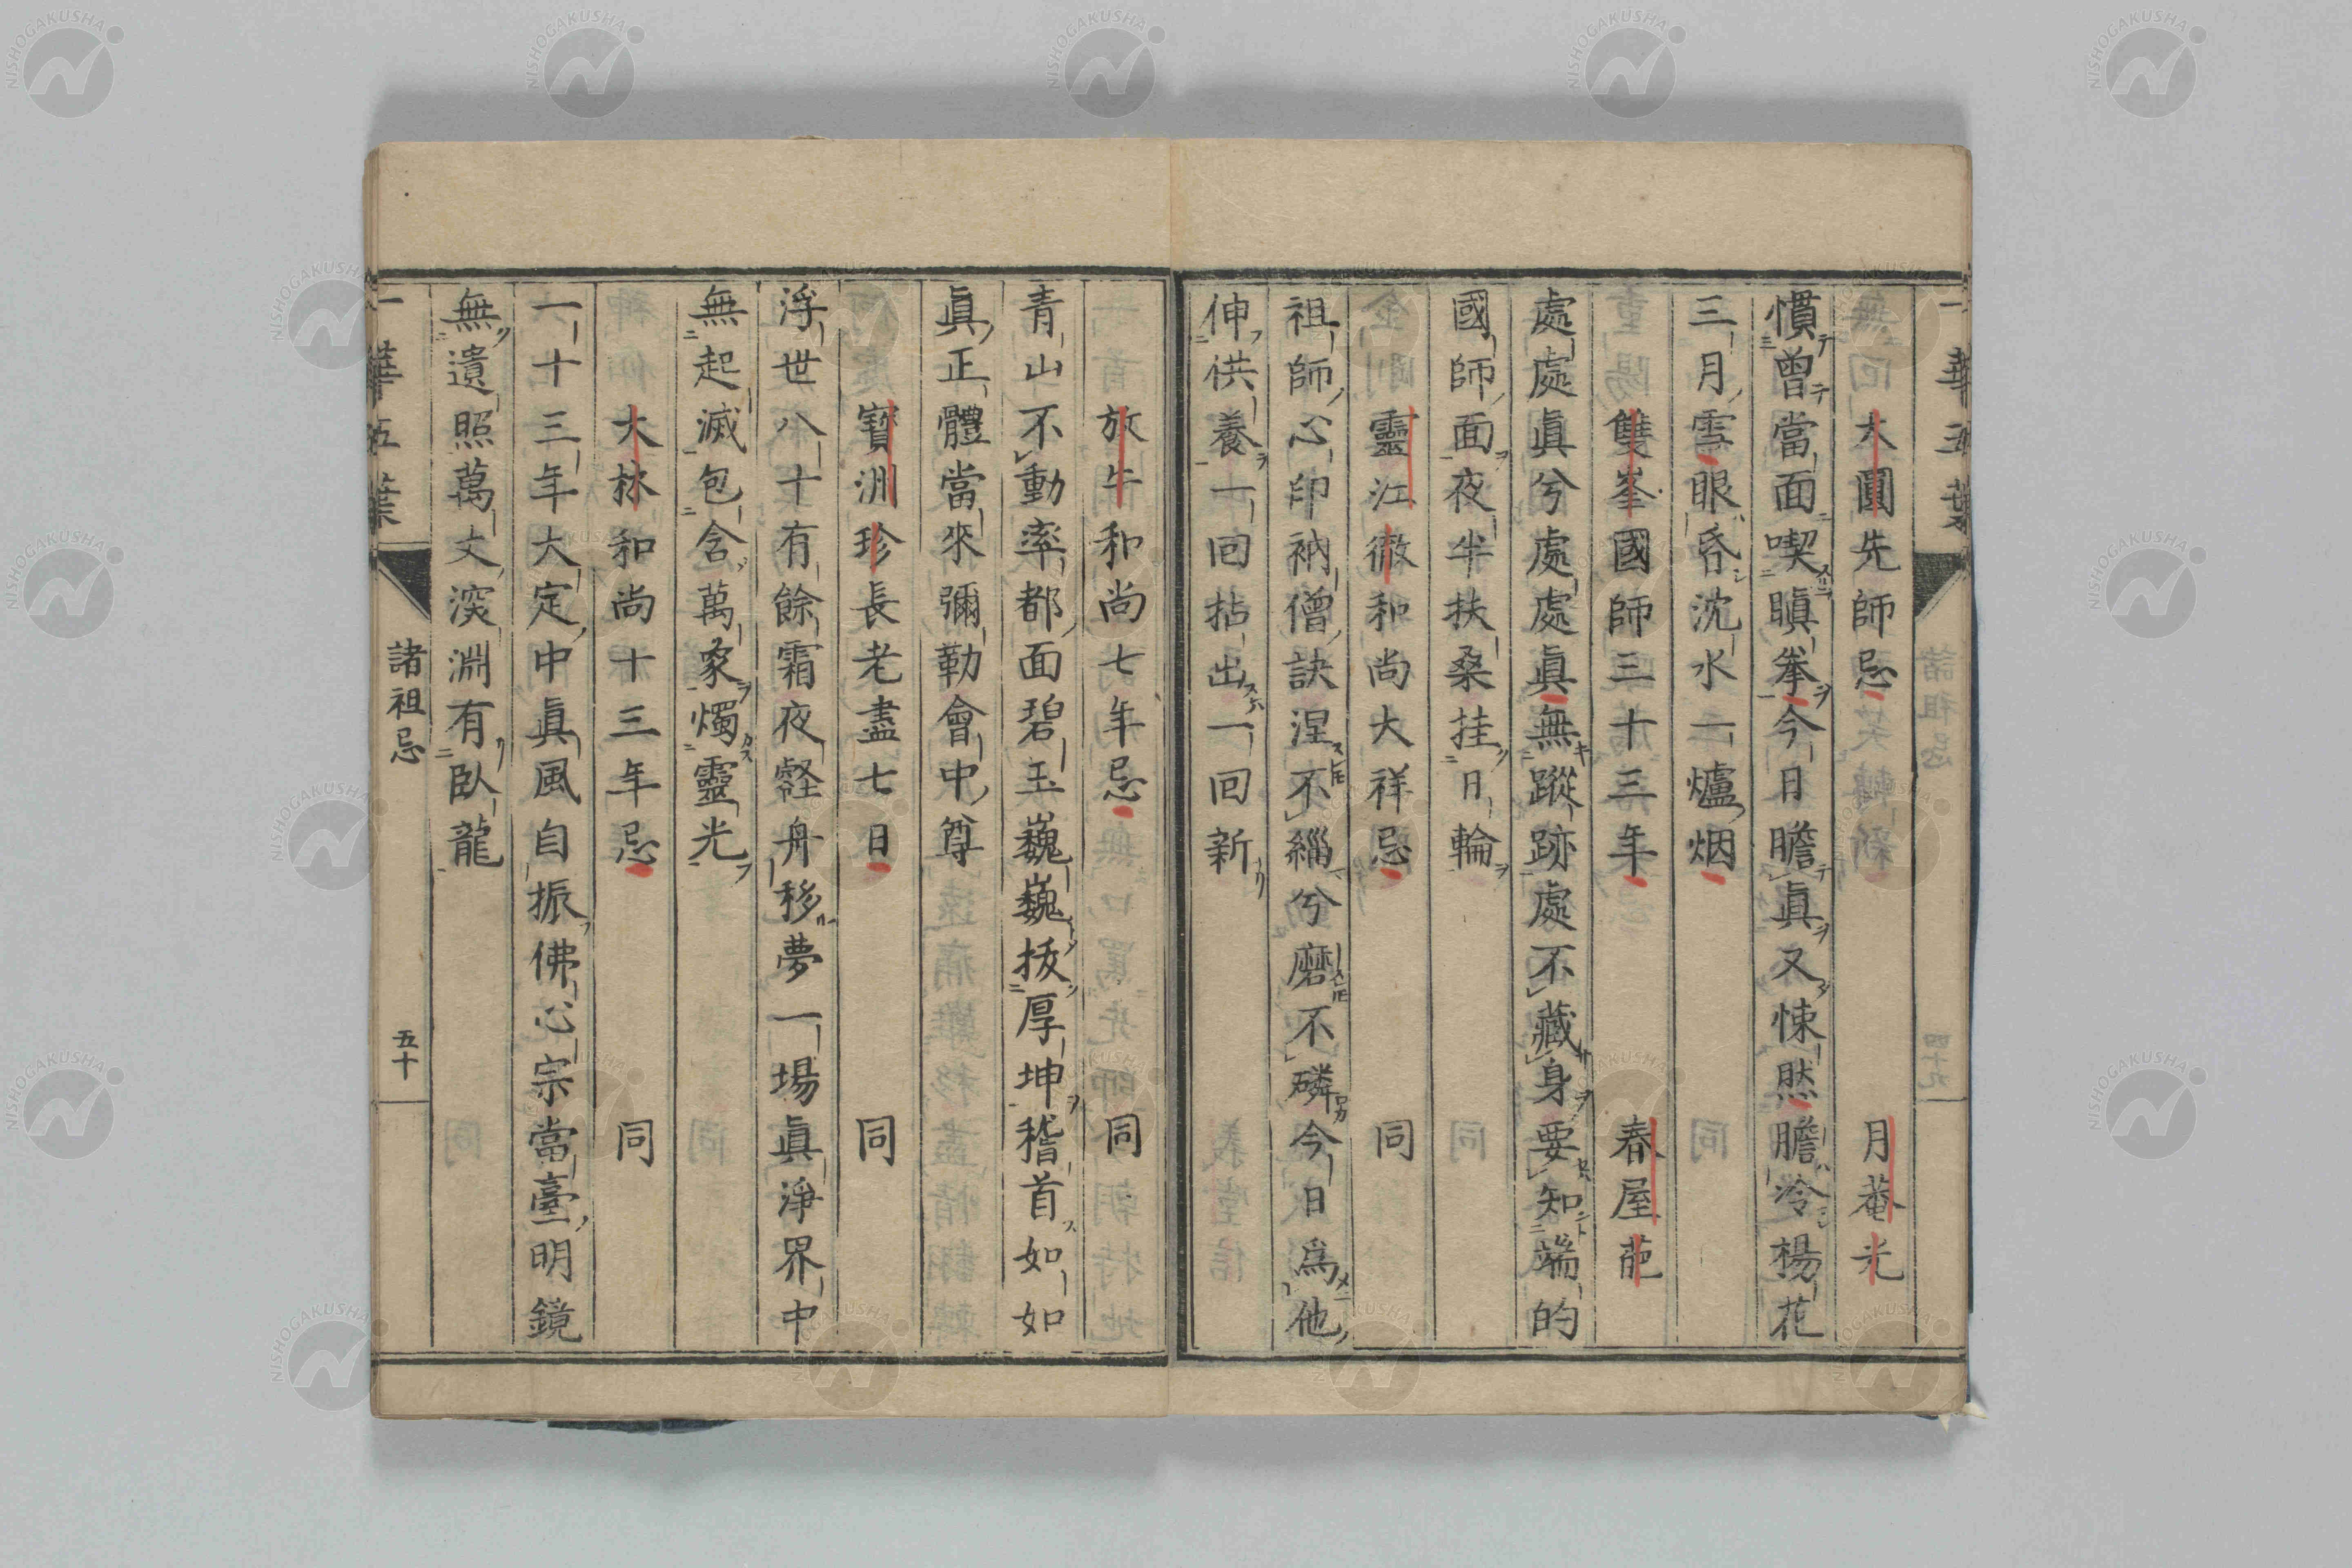 大圓先師忌 月菴光
慣曾當面喫瞋拳今日瞻眞又悚然膽冷楊花
三月雪眼昏沈水一爐烟
雙峯國師三十三年 春屋葩
處處眞兮處處眞無蹤跡處不藏身要知端的
國師面夜半扶桑挂日輪
靈江徹和尚大祥忌 同
祖師心印衲僧訣涅不緇兮磨不磷今日爲他
伸供養一回拈出一回新
放牛和尚七年忌 同
青山不動率都面碧玉巍巍拔厚坤稽首如如
眞正體當來彌勒會中尊
寳洲珍長老盡七日 同
浮世八十有餘霜夜壑舟移夢一場眞淨界中
無起滅包含萬象燭靈光
大林和尚十三年忌 同
一十三年大定中眞風自振佛心宗當臺明鏡
無遺照萬丈深淵有臥龍
一華五葉 諸祖忌 五十